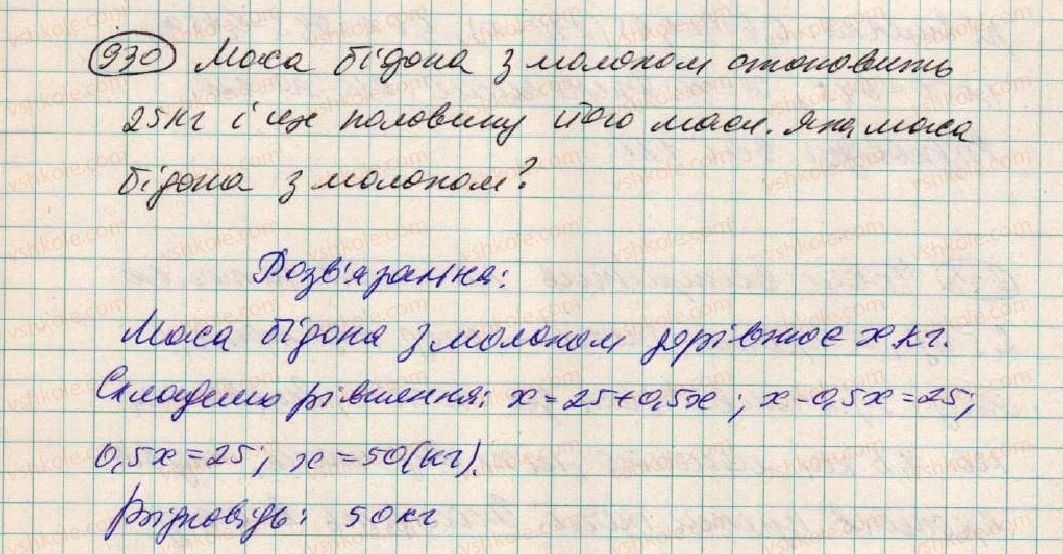 930 Маса бідона з молоком становить
25кг і ще половину його маси. Яка маса
бідона з молоком?
Розв'язання:
Маса бідона з молоком дорівнює x кг.
Складемо рівняння: x = 25 + 0,5x ; x - 0,5x = 25;
0,5x = 25; x = 50(кг).
Відповідь: 50кг